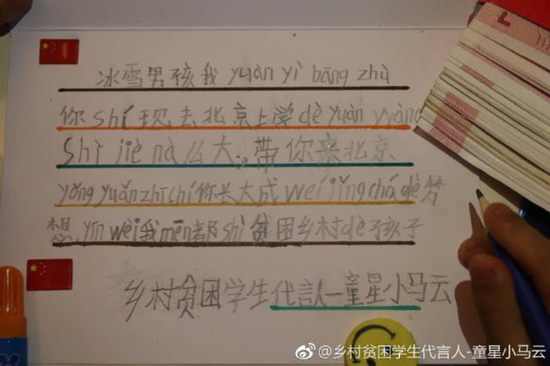 冰雪男孩我yuàn yì bāng zhù
你shí现去北京上学dè yuàn wàng
Shì jiè nà么大,带你来北京
yǒng yuǎn zhī chí你长大成wéi jǐng chá dè梦
想 yīn wèi我mēn都shì贫困乡村dè孩子
乡村贫困学生代言人—童星小马云
@乡村贫困学生代言人-童星小马云